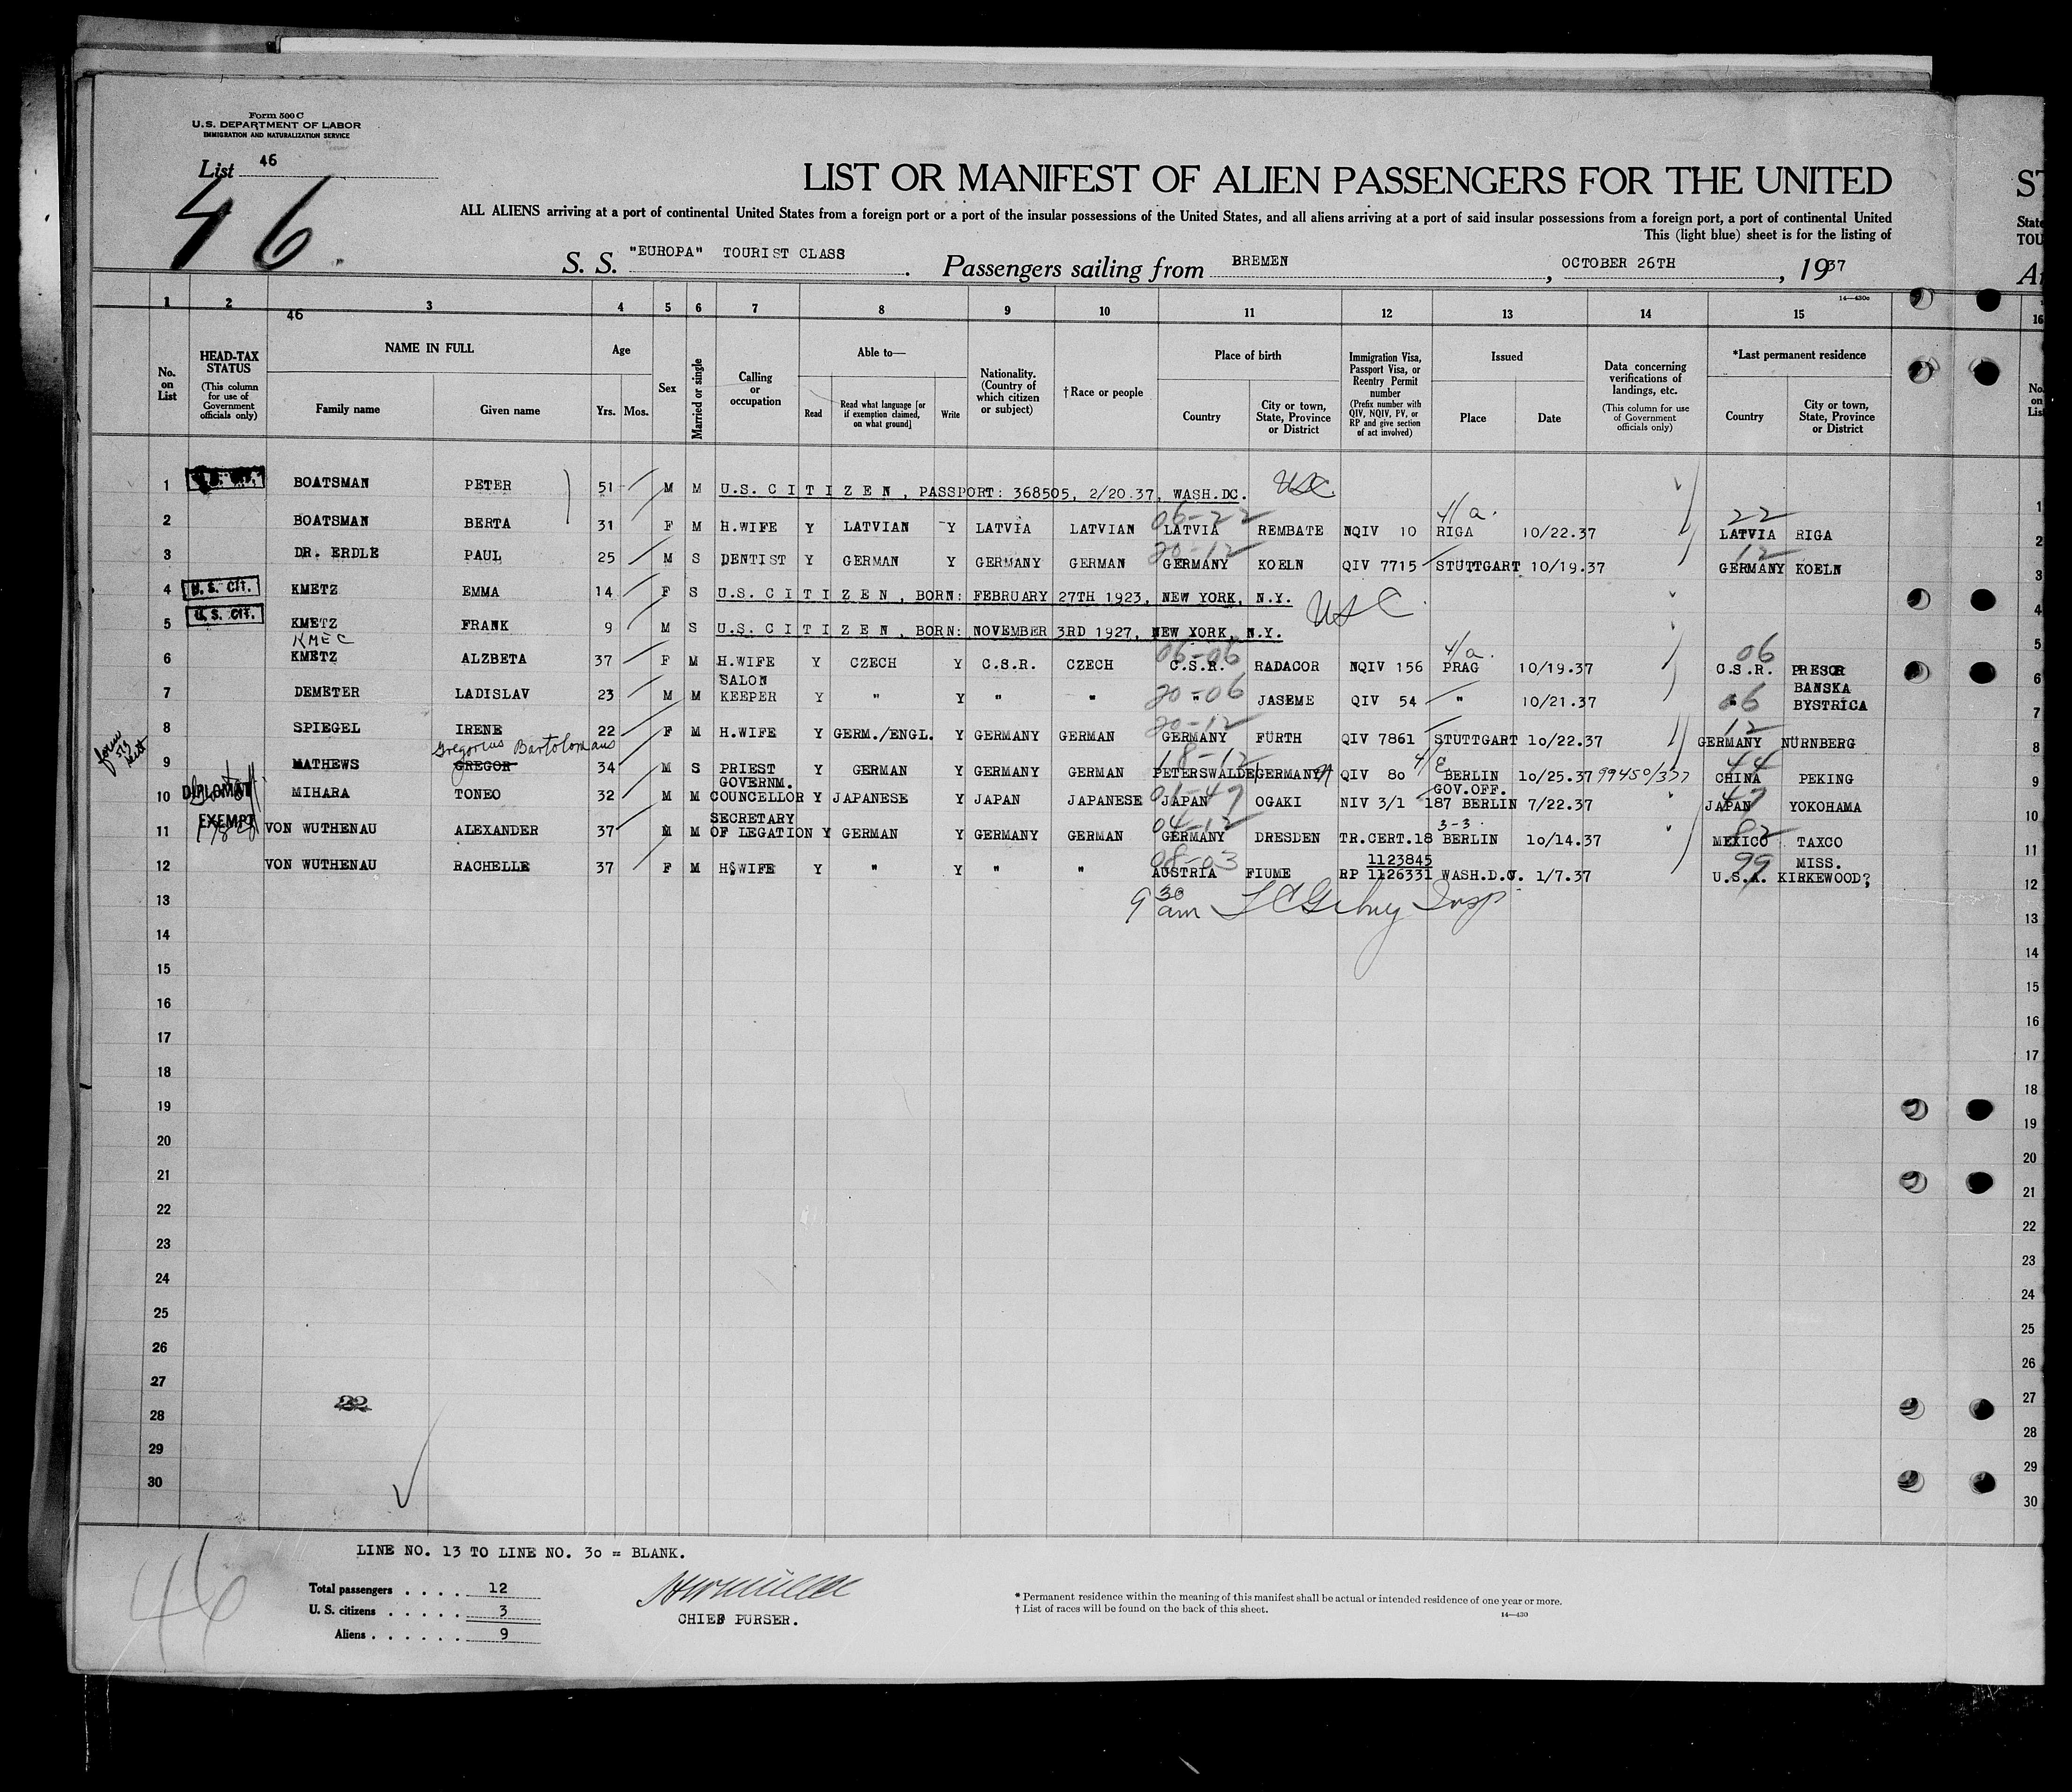 Form 500 C
U.S. DEPARTMENT OF LABOR
IMMIGRATION AND NATURALIZATION SERVICE
List 46
46
LIST OR MANIFEST OF ALIEN PASSENGERS FOR THE UNITED
ALL ALIENS arriving at a port of continental United States from a foreign port or a port of the insular possessions of the United States, and all aliens arriving at a port of said insular possessions from a foreign port, a port of continental United
This (light blue) sheet is for the listing of
S. S. "EUROPA" TOURIST CLASS. Passengers sailing from BREMEN, OCTOBER 26TH, 1937
14—430c
1 2 3 4 5 6 7 8 9 10 11 12 13 14 15
46
No. on List
HEAD-TAX STATUS (This column for use of Government officials only)
NAME IN FULL
Family name Given name
Age
Yrs. Mos.
Sex
Married or single
Calling or occupation
Able to—
Read
Read what language [or if exemption claimed, on what ground]
Write
Nationality. (Country of which citizen or subject)
†Race or people
Place of birth
Country
City or town, State, Province or District
Immigration Visa, Passport Visa, or Reentry Permit number (Prefix number with QIV, NQIV, PV, or RP and give section of act involved)
Issued
Place Date
Data concerning verifications of landings, etc. (This column for use of Government officials only)
*Last permanent residence
Country
City or town, State, Province or District
1 BOATSMAN PETER 51 M M U.S. C I T I Z E N , PASSPORT: 368505, 2/20.37, WASH.DC. USC
4/a. 22
2 BOATSMAN BERTA 31 F M H.WIFE Y LATVIAN Y LATVIA LATVIAN 06-22 LATVIA REMBATE NQIV 10 RIGA 10/22.37 LATVIA RIGA
3 DR. ERDLE PAUL 25 M S DENTIST Y GERMAN Y GERMANY GERMAN 20-12 GERMANY KOELN QIV 7715 STUTTGART 10/19.37 12 GERMANY KOELN
4 U.S. Cit. KMETZ EMMA 14 F S U.S. C I T I Z E N , BORN: FEBRUARY 27TH 1923, NEW YORK, N.Y.
USC
5 U.S. Cit. KMETZ FRANK 9 M S U.S. C I T I Z E N , BORN: NOVEMBER 3RD 1927, NEW YORK, N.Y.
KMEC 4/a.
6 KMETZ ALZBETA 37 F M H.WIFE Y CZECH Y C.S.R. CZECH 06-06 C.S.R. RADACOR NQIV 156 PRAG 10/19.37 06 C.S.R. PRESOR
7 DEMETER LADISLAV 23 M M SALON KEEPER Y " Y " " 20-06 " JASEME QIV 54 " 10/21.37 06 BANSKA BYSTRICA
8 SPIEGEL IRENE 22 F M H.WIFE Y GERM./ENGL. Y GERMANY GERMAN 20-12 GERMANY FÜRTH QIV 7861 STUTTGART 10/22.37 12 GERMANY NÜRNBERG
Gregorius Bartolomaus
9 MATHEWS GREGOR 34 M S PRIEST Y GERMAN Y GERMANY GERMAN 18-12 PETERSWALDE/GERMANY QIV 80 4/E BERLIN 10/25.37 99450/337 44 CHINA PEKING
10 DIPLOMAT MIHARA TONEO 32 M M GOVERNM. COUNCELLOR Y JAPANESE Y JAPAN JAPANESE 01-47 JAPAN OGAKI NIV 3/1 187 GOV.OFF. BERLIN 7/22.37 47 JAPAN YOKOHAMA
11 EXEMPT VON WUTHENAU ALEXANDER 37 M M SECRETARY OF LEGATION Y GERMAN Y GERMANY GERMAN 04-12 GERMANY DRESDEN TR.CERT.18 3-3 BERLIN 10/14.37 82 MEXICO TAXCO
12 VON WUTHENAU RACHELLE 37 F M H.WIFE Y " Y " " 08-03 AUSTRIA FIUME RP 1123845 1126331 WASH.D.C. 1/7.37 99 U.S.A. MISS. KIRKEWOOD?
13 9 30 am
14
15
16
17
18
19
20
21
22
23
24
25
26
27
28 22
29
30
LINE NO. 13 TO LINE NO. 30 = BLANK.
46
Total passengers . . . . 12
U. S. citizens . . . . . 3
Aliens . . . . . . 9
CHIEF PURSER.
* Permanent residence within the meaning of this manifest shall be actual or intended residence of one year or more.
† List of races will be found on the back of this sheet.
14—430